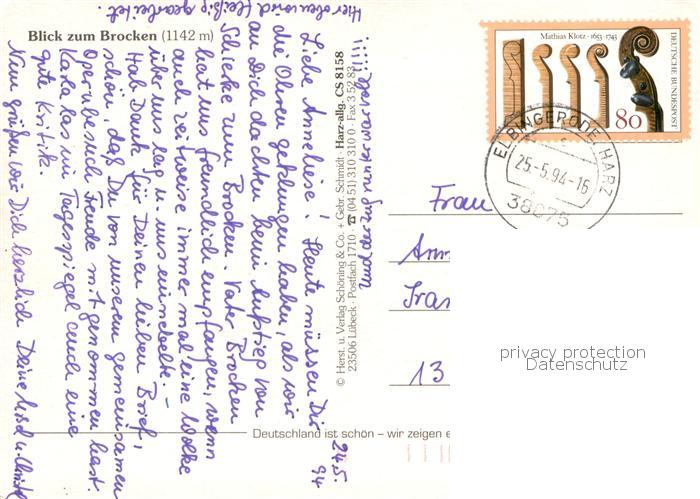 Blick zum Brocken (1142 m)
24.5.
94
Liebe Anneliese! Heute müssen Dir
die Ohren geklungen haben, als wir
an Dich dachten beim Aufstieg von
Schierke zum Brocken. Vater Brocken
hat uns freundlich empfangen, wenn
auch zeitweise immer mal eine Wolke
über uns lag u. uns einnebelte. –
Hab Dank für Deinen lieben Brief,
schön, daß Du von unserem gemeinsamen
Opernbesuch Freude mitgenommen hast.
Kaka las im Tagesspiegel auch eine
gute Kritik.
Nun grüßen wir Dich herzlich Deine
Hier oben wird fleißig gearbeitet.
Und der Zug ruht
!!!!!
© Herst. u. Verlag Schöning & Co. + Gebr. Schmidt · Harz-allg. CS 8158
23506 Lübeck · Postfach 1710 · ☎ (04 51) 310 310 0 · Fax 3 52 83
Mathias Klotz · 1653-1743
DEUTSCHE BUNDESPOST
80
ELBINGERODE, HARZ
25.-5.94-16
38875
Frau
13
privacy protection
Datenschutz
Deutschland ist schön – wir zeigen e